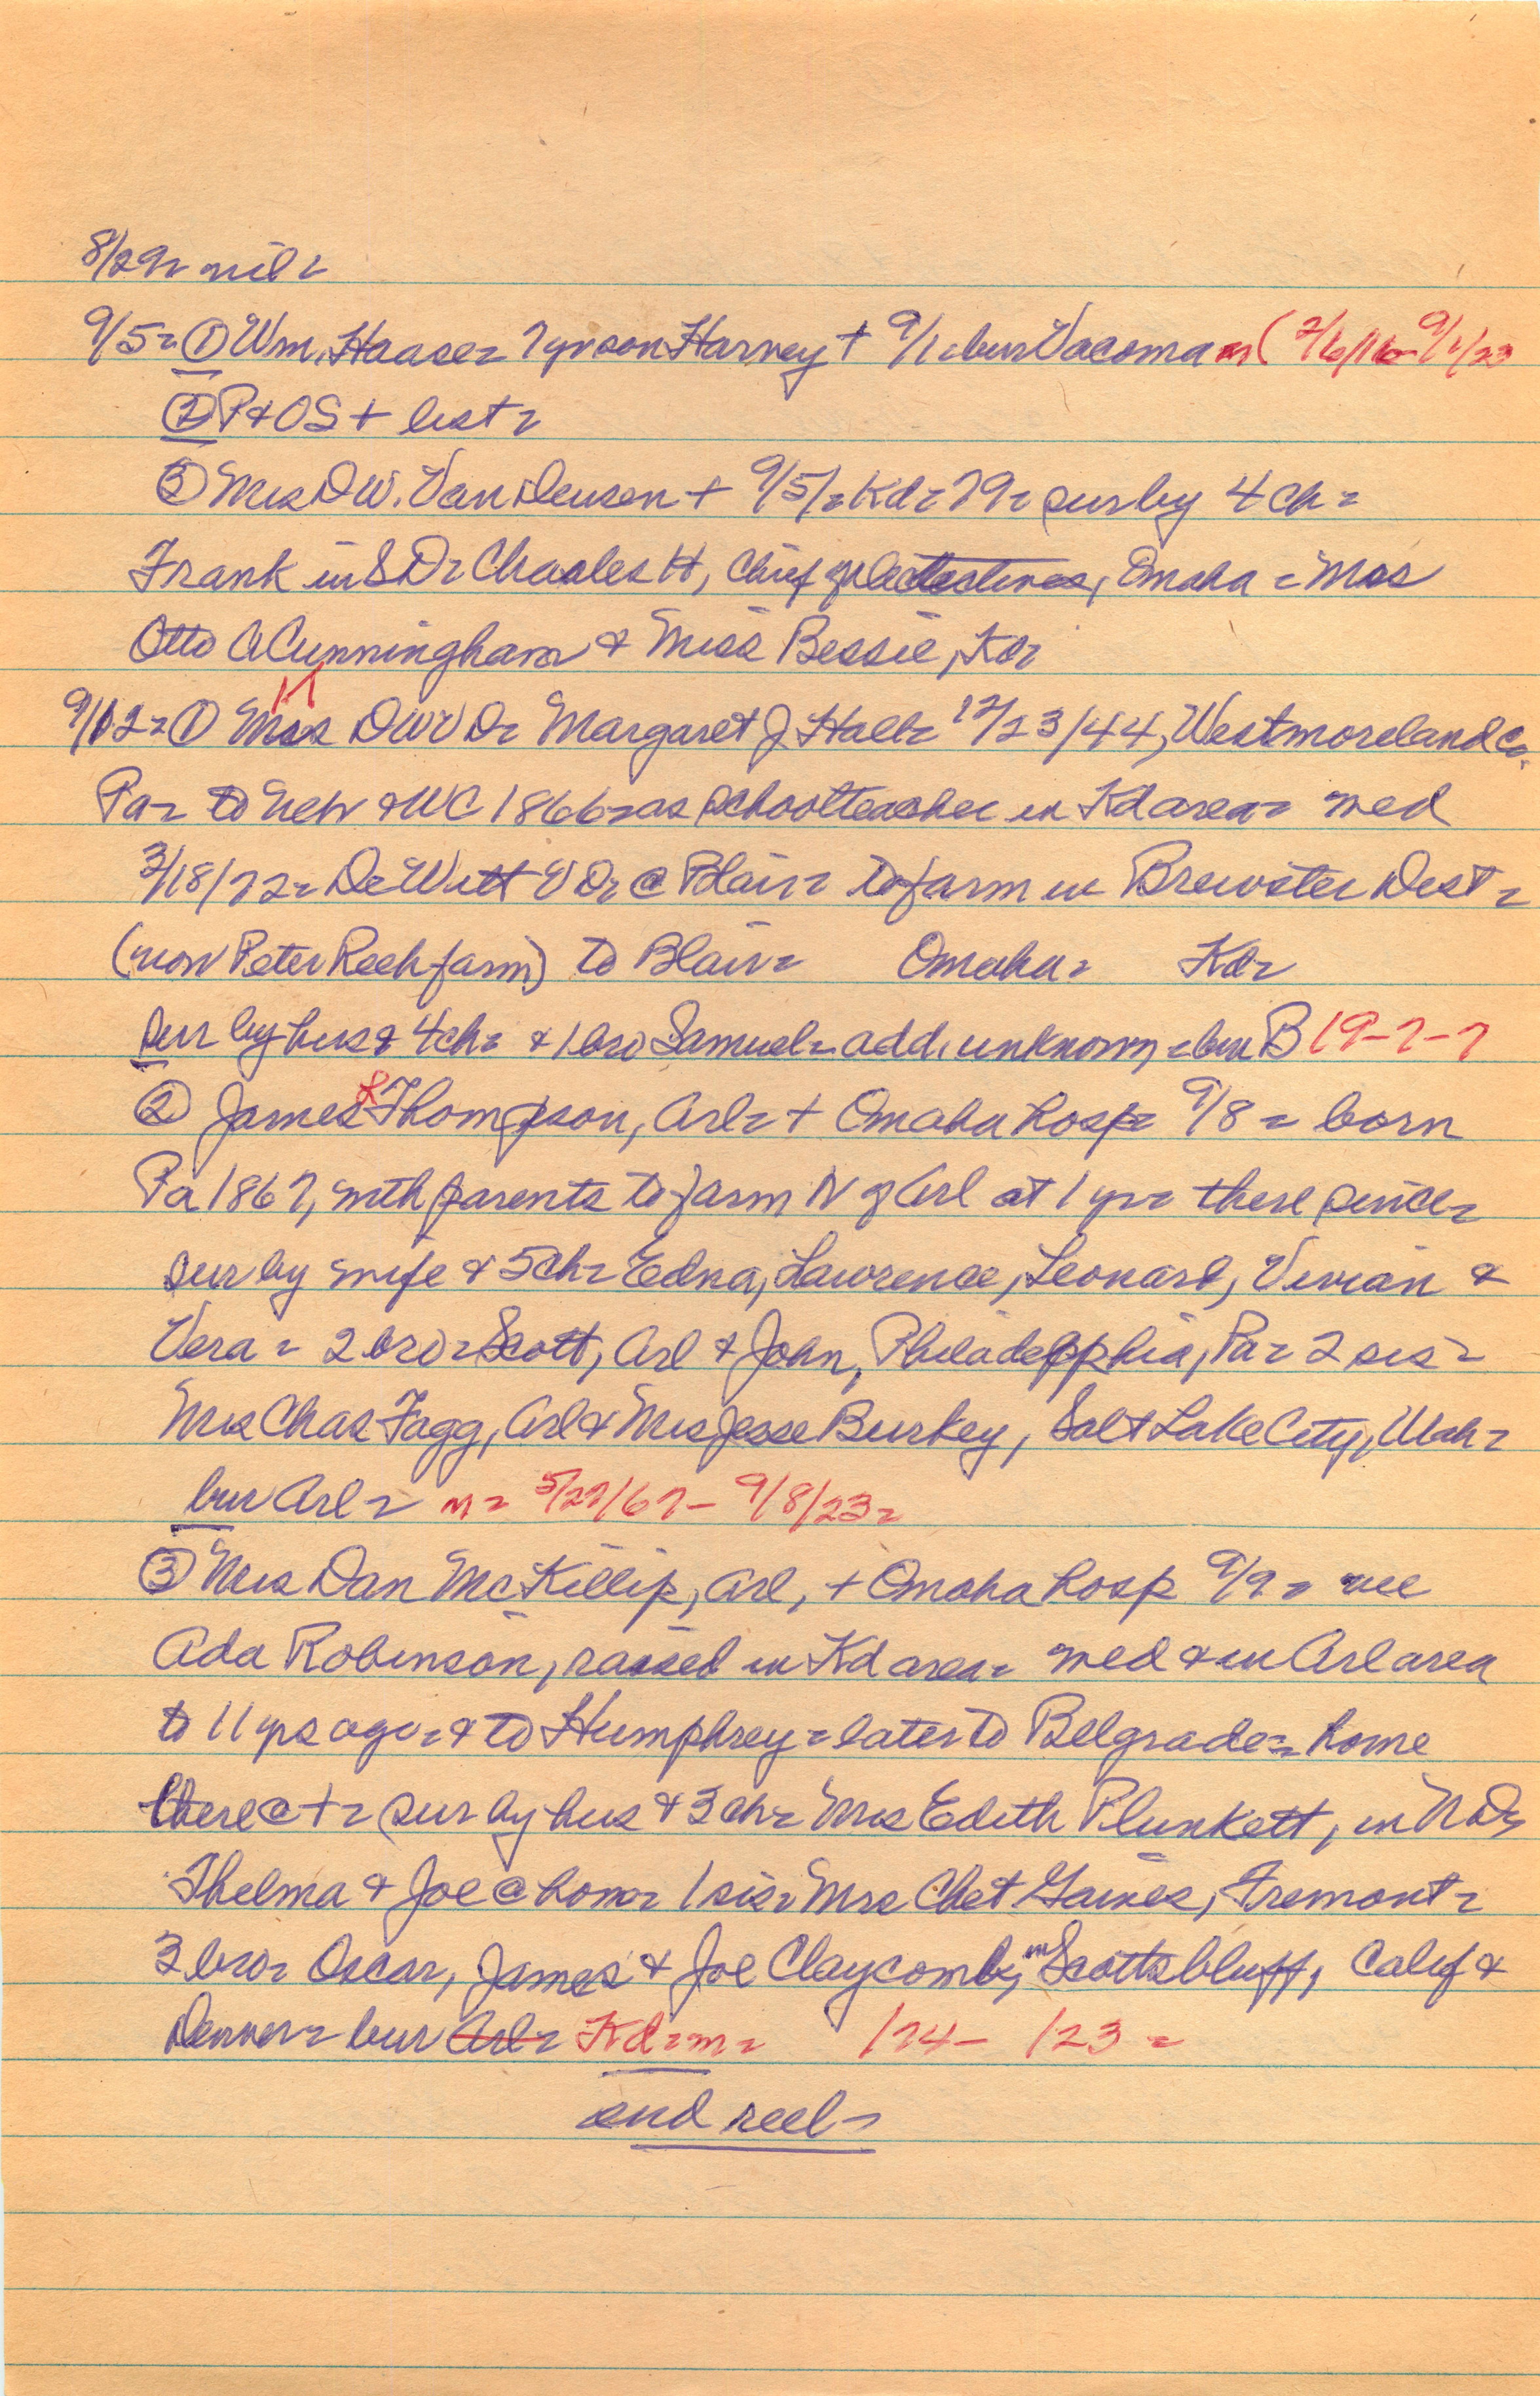 8/29 = nil =
9/5 = ① Wm. Haase = 7 yr son Harvey + 9/1 = bur Vacoma m ( 2/6/16 - 9/1/23
② P & OS + list =
③ Mrs D W. Van Deusen + 9/5/ = Kd = 79 = sur by 4 ch =
Frank in S D = Charles H, Chief of detectives, Omaha = Mrs
Otto A Cunningham & Miss Bessie, Kd =
9/12 = ① Mrs D W V D = Margaret J. Hall = 12/23/44, Westmoreland Co.
Pa = to Neb & WC 1866 = as schoolteacher in Kd area = med
3/18/72 = De Witt V D = @ Blair = to farm in Brewster Dist =
(now Peter Rech farm) to Blair = Omaha = Kd =
sur by hus & 4 ch = & 1 bro Samuel = add. unknown = bur B 19-7-7
② James R Thompson, Arl = + Omaha hosp = 9/8 = born
Pa 1867, with parents to farm N of Arl at 1 yr = there since =
sur by wife & 5 ch = Edna, Lawrence, Leonard, Vivian &
Vera = 2 bro = Scott, Arl & John, Philadepphia, Pa = 2 sis =
Mrs Chas Fagg, Arl & Mrs Jesse Burkey, Salt Lake City, Utah =
bur Arl = m = 5/27/67 - 9/8/23 =
③ Mrs Dan McKillip, Arl, + Omaha hosp 9/9 = nee
Ada Robinson, raised in Kd area = med & in Arl area
to 11 yrs ago = & to Humphrey = later to Belgrade = home
there @ + = sur by hus & 3 ch = Mrs Edith Plunkett, in N D,
Thelma & Joe @ home = 1 sis = Mrs Chet Gaines, Fremont =
3 bro = Oscar, James & Joe Claycomb, in Scottsbluff, Calif &
Denver = bur Arl = Kd = m = /74 - /23 =
end reel =